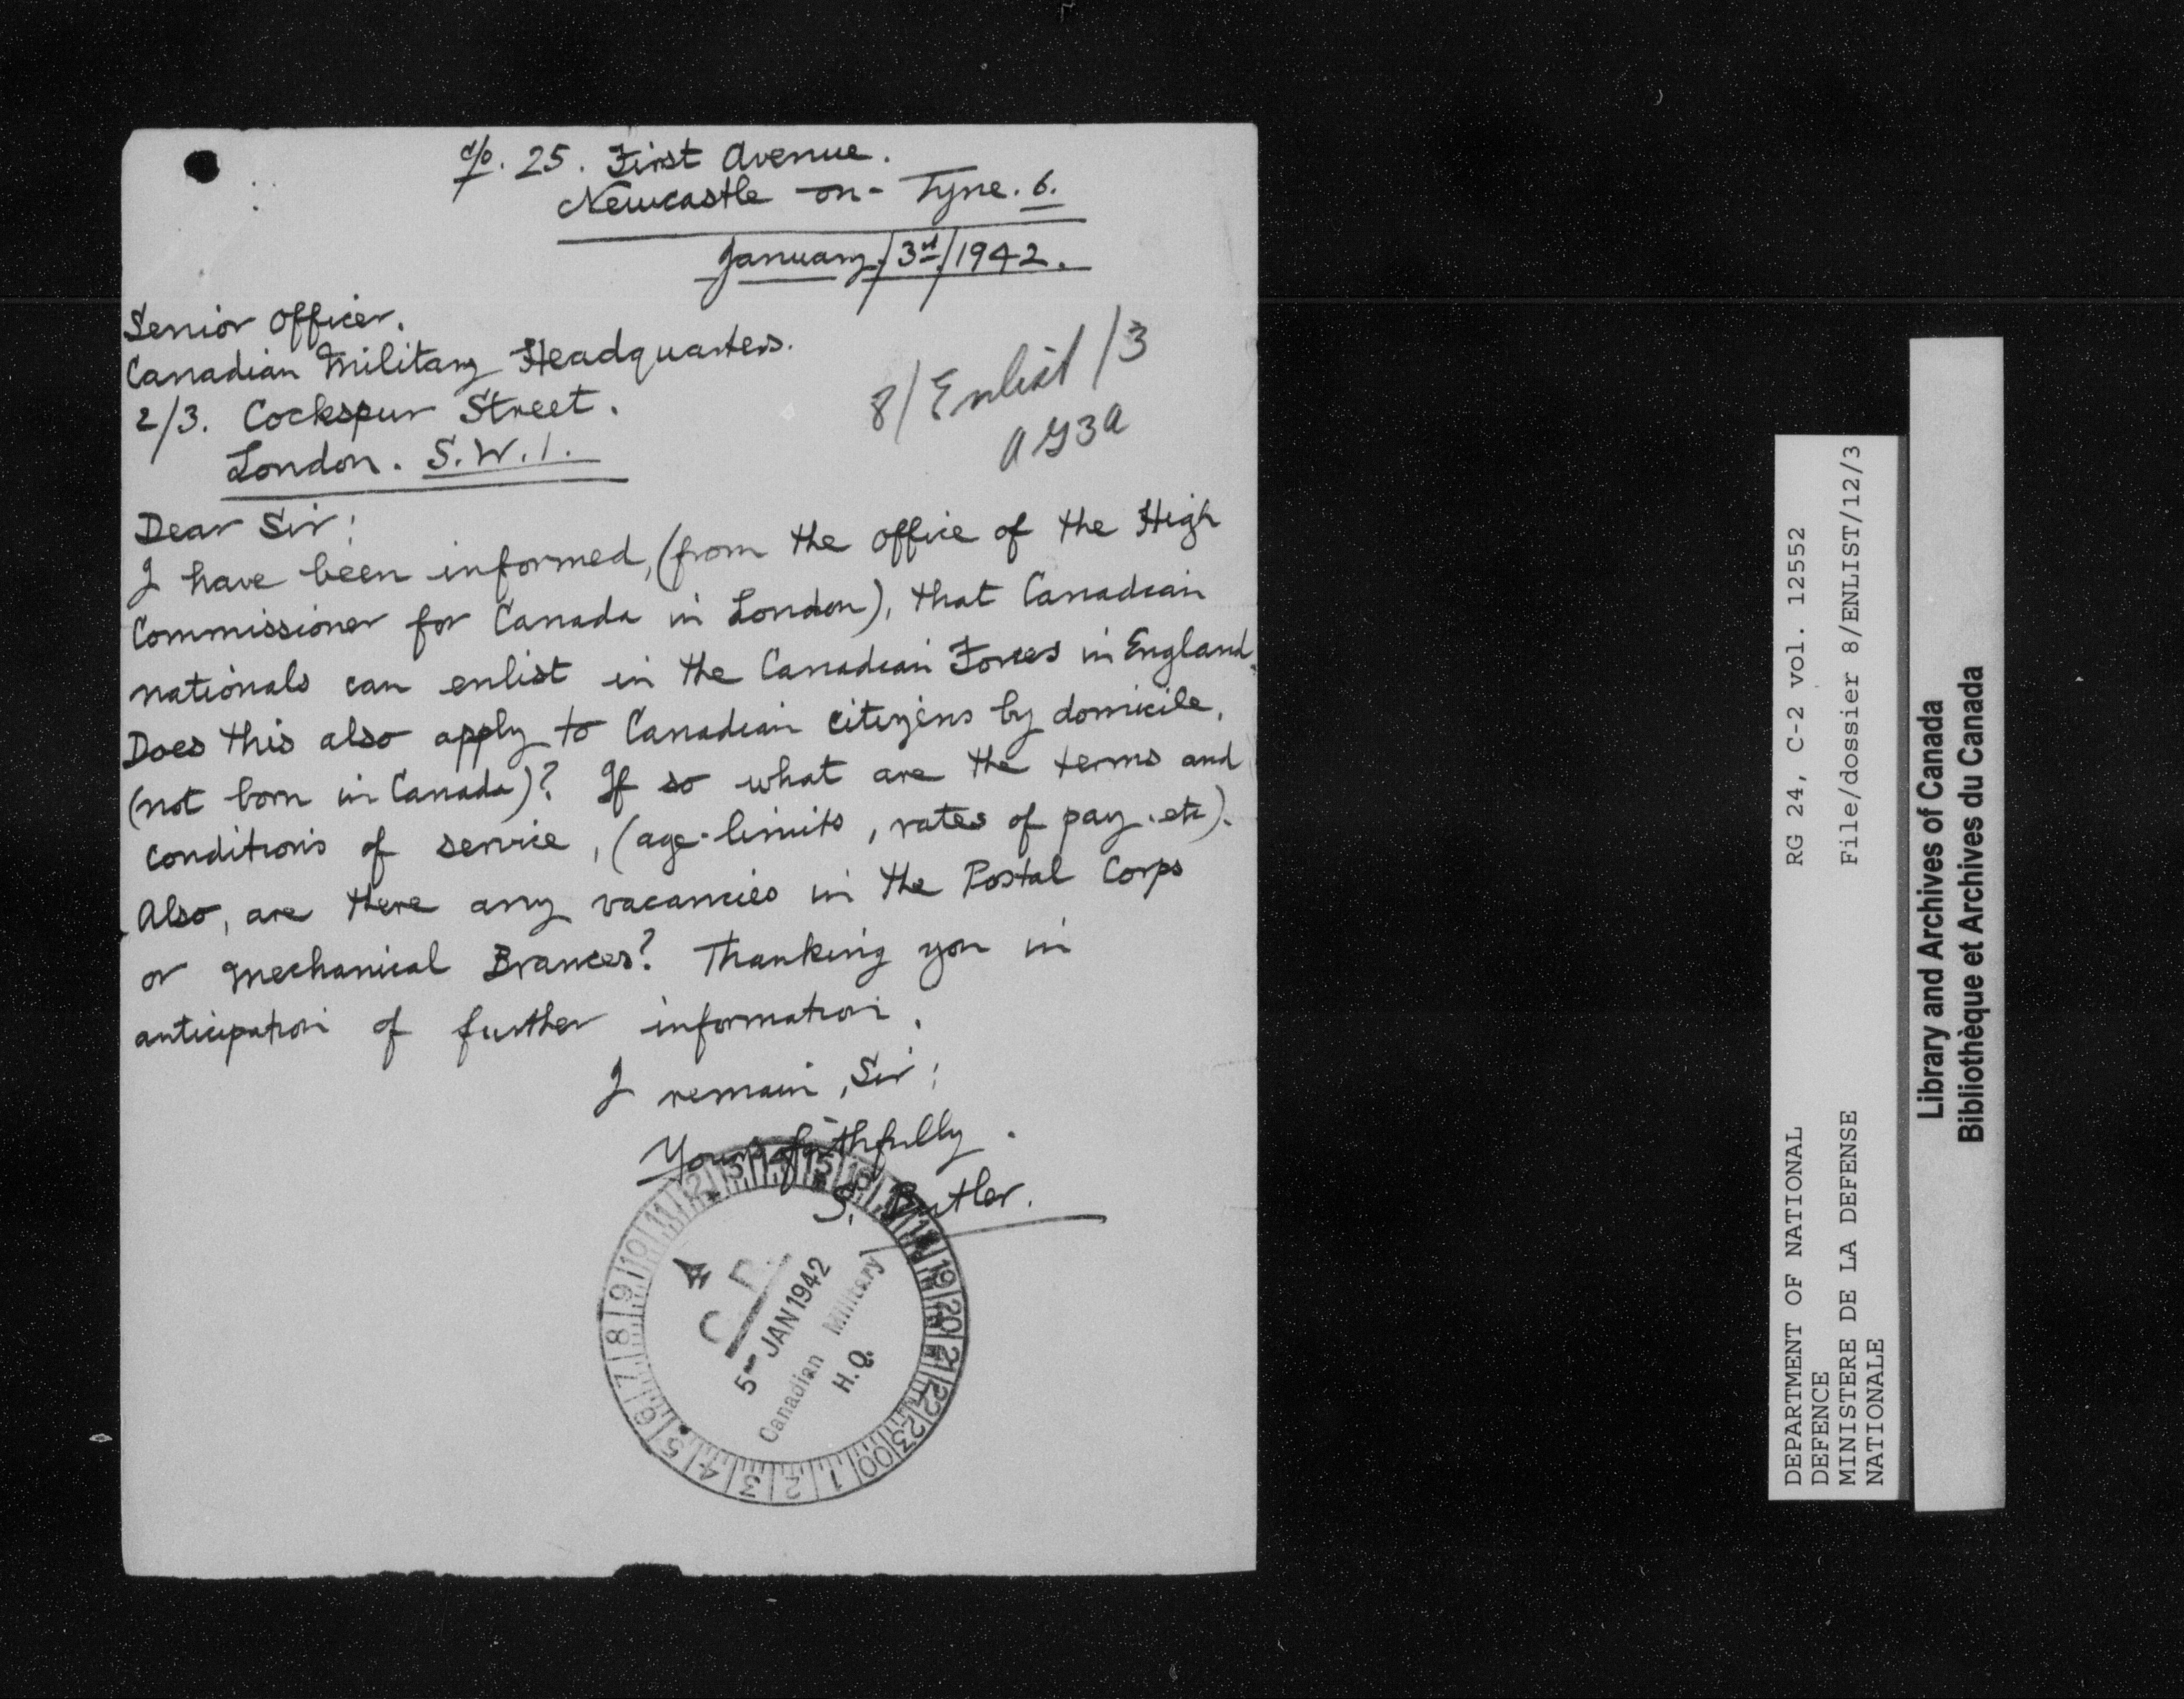 c/o. 25. First Avenue.
Newcastle on-Tyne. 6.
January/3rd/1942.
Senior Officer.
Canadian Military Headquarters.
2/3. Cockspur Street.
London. S.W.1.
8/Enlist/3
AG3a
Dear Sir:
I have been informed, (from the office of the High
Commissioner for Canada in London), that Canadian
nationals can enlist in the Canadian Forces in England.
Does this also apply to Canadian citizens by domicile,
(not born in Canada)? If so what are the terms and
conditions of service, (age-limits, rates of pay. etc).
Also, are there any vacancies in the Postal Corps
or Mechanical Brances? Thanking you in
anticipation of further information.
I remain, Sir:
Yours faithfully.
S. Butler.
C.R.
5 JAN 1942
Canadian Military
H.Q.
2 3 4 15 16 19 20 21 22 23 00 1 2 3 4 5 6 7 8 9 10 11
RG 24, C-2 vol. 12552
File/dossier 8/ENLIST/12/3
DEPARTMENT OF NATIONAL
DEFENCE
MINISTERE DE LA DEFENSE
NATIONALE
Library and Archives of Canada
Bibliothèque et Archives du Canada